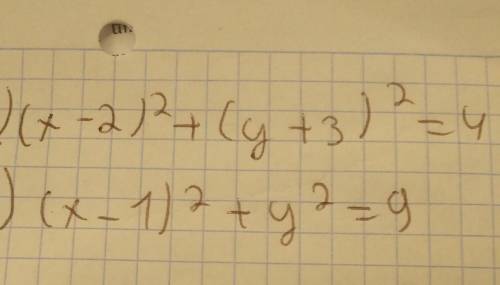 )(x-2)²+(y+3)²=4
) (x-1)²+y²=9